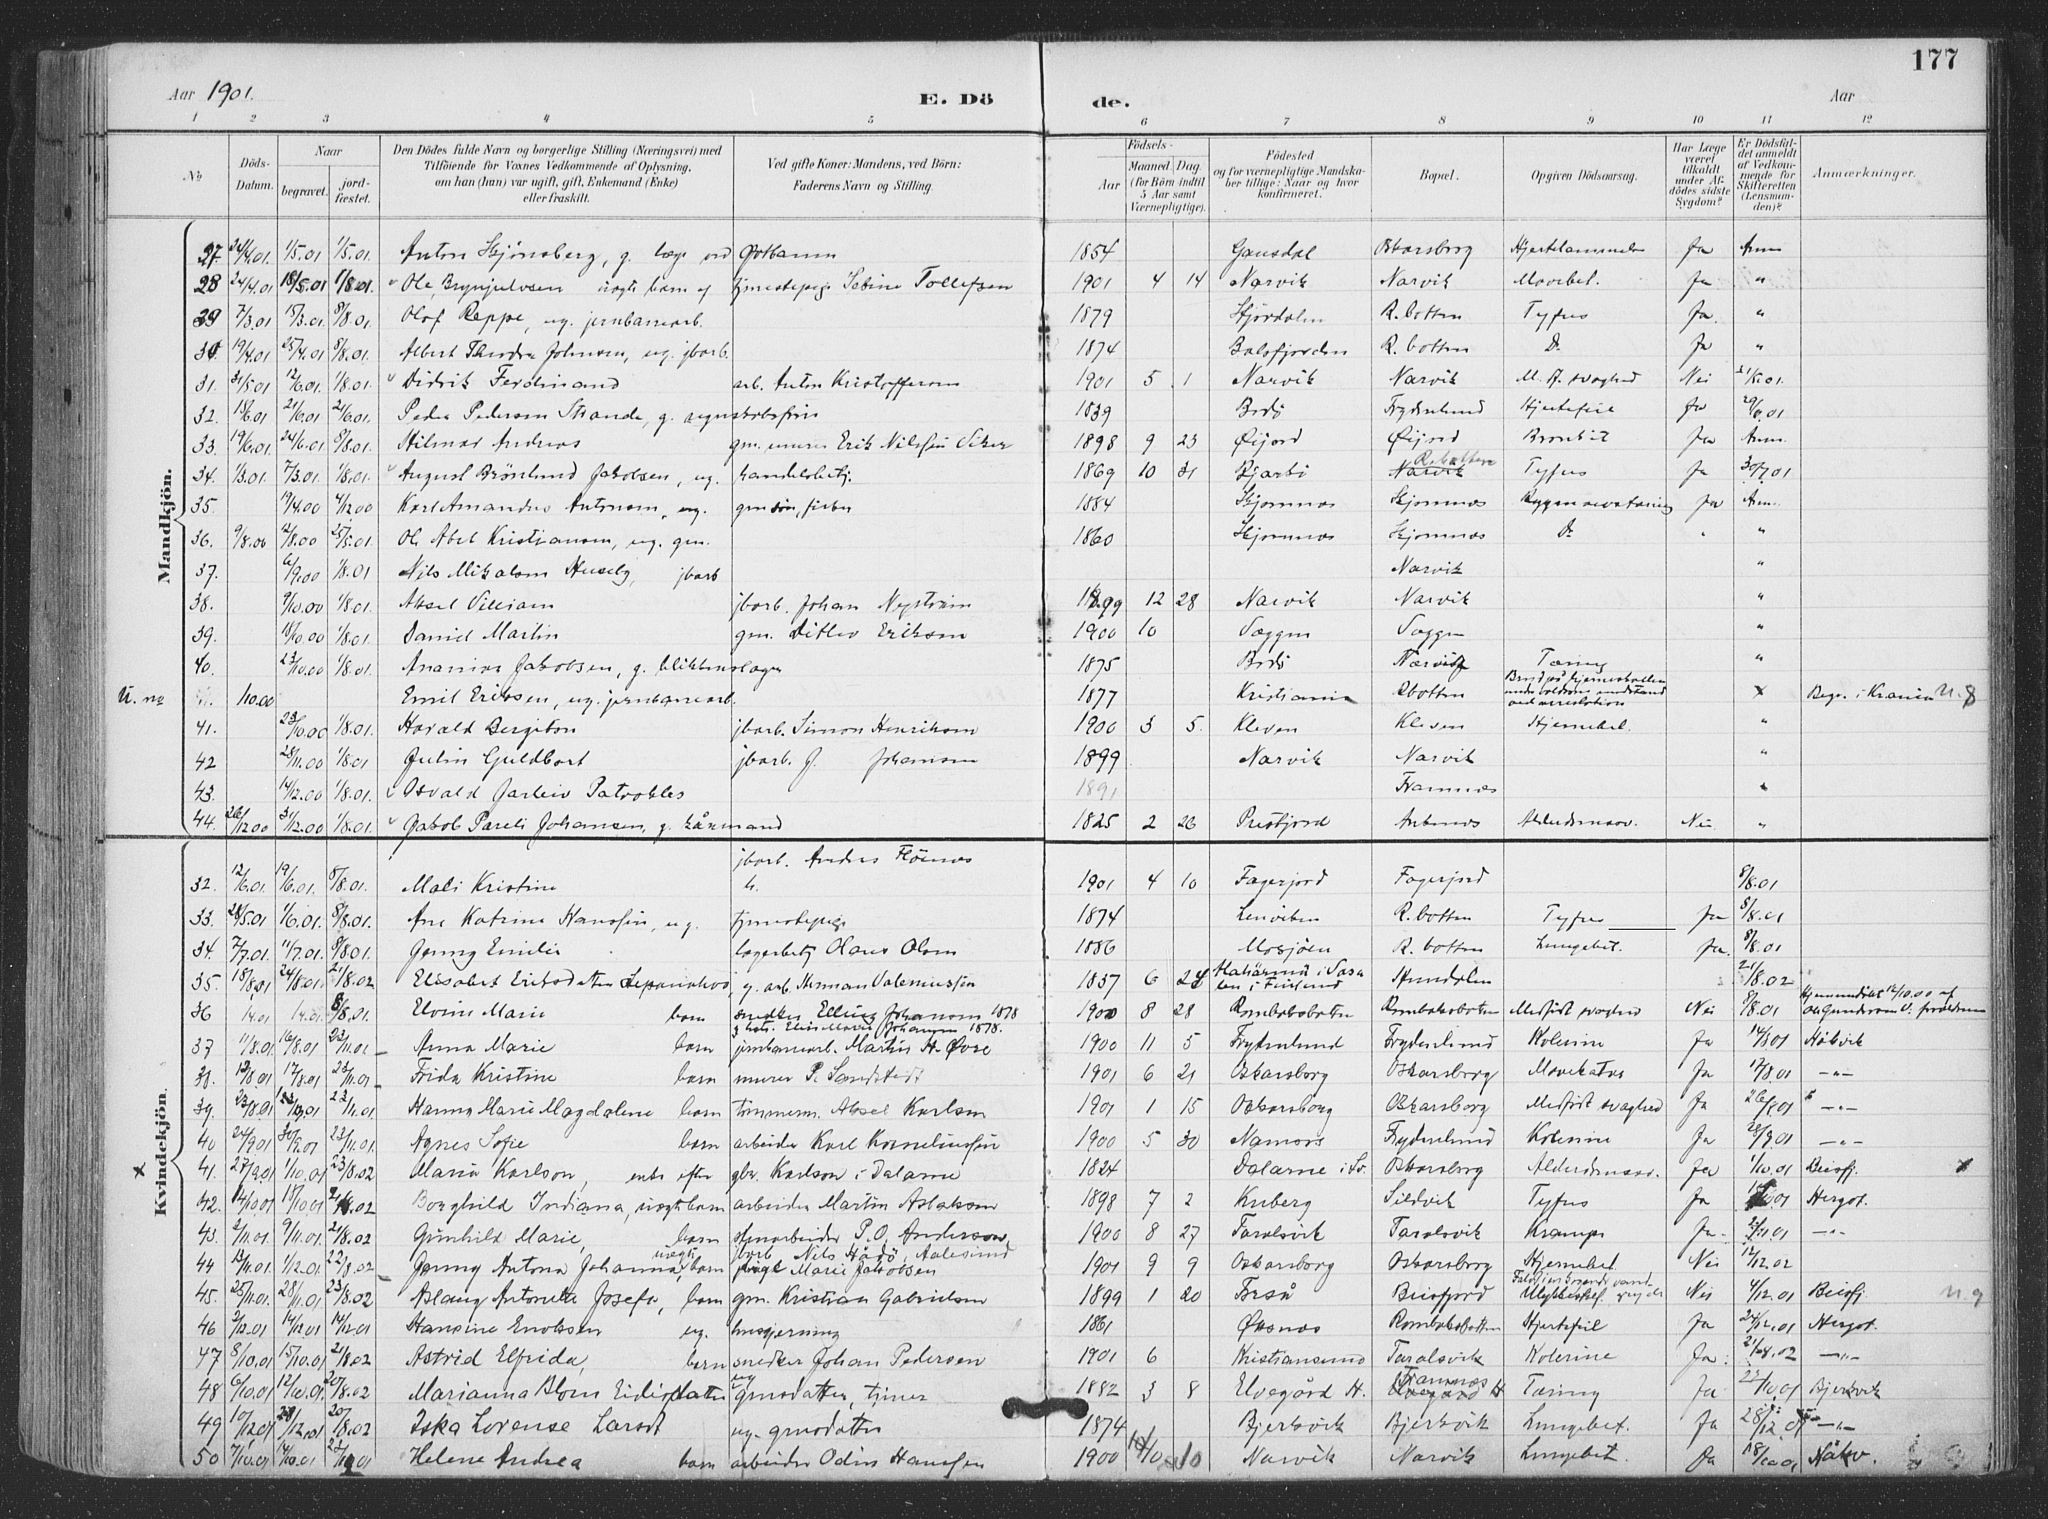 177
Aar 1901. E. Dö de. Aar
1 2 3 4 5 6 7 8 9 10 11 12
No Döds-Datum. Naar begravet. jord-fæstet. Den Dödes fulde Navn og borgerlige Stilling (Næringsvei) med Tilföiende for Voxnes Vedkommende af Oplysning, om han (hun) var ugift, gift, Enkemand (Enke) eller fraskilt. Ved gifte Koner: Mandens, ved Börn: Faderens Navn og Stilling. Födsels- Aar Maaned Dag. (for Börn indtil 5 Aar samt Værnepligtige). Födested og for værnepligtige Mandskaber tillige: Naar og hvor konfirmeret. Bopæl. Opgiven Dödsaarsag. Har Læge været tilkaldt under Afdödes sidste Sygdom? Er Dödsfaldet anmeldt af Vedkommende for Skifteretten (Lensmanden)? Anmærkninger.
Mandkjön.
27 24/4.01 1/5.01 1/5.01 Anton Skjönsberg, g. 1854 Gausdal Oskarsborg Hjertelammelse Ja Anm
28 24/4.01 18/5.01 1/8.01. Ole Brynjulvsen uægte barn af tjenestepige Sebine Tollefsen 1901 4 14 Narvik Narvik Ja "
29 7/3.01 15/3.01. 8/8.01. Olof Reppe, ug. jernbanearb. 1879 Stjördalen R.botten Tyfus Ja. "
30 19/4.01 25/4.01 8/8.01. Albert Thodra Johnsen, ug. jbarb. 1874 Balsfjorden R. botten D. Ja "
31. 31/5.01 12/6.01. 1/8.01. Didrik Ferdinand arb. Anton Kristoffersen 1901 5 1 Narvik Narvik M. f. svaghed Nei
32. 15/6.01 21/6.01 21/6.01. Peder Pedersen Strande, g. 1839 Bodö Frydenlund Hjertefeil Ja 29/6.01
33. 19/6.01 24/6.01 8/8.01. Hilmar Andreas gm. Erik Nilssen 1898 9 23 Øijord Øijord Bronkit Ja Anm.
34. 1/3.01 7/3.01 1/8.01. August Brönlund Jakobsen, ug. handelsbetj. 1869 10 31 Narvik R.botten Tyfus Ja 30/7.01
35. 19/4.00 4/12.00 Karl Amandus Antonsen, ug. gmsön, fisker 1884 Skjomnæs Skjomnæs Ja Anm.
36. 9/8.00 12/8.00 25/5.01. Ole Abel Kristiansen, ug. gm. 1860 Skjomnæs Skjomnæs D. "
37. 6/9.00 1/8.01 Nils Mikalsen Huseby, jbarb Narvik "
38. 9/10.00 1/8.01. Aksel Villiam jbarb. Johan Nyström 1899 12 28 Narvik Narvik "
39. 18/10.00 1/8.01. Daniel Martin gm. Ditlev Eriksen 1900 10 Væggen Væggen "
40. 23/10.00 1/8.01. Ananias Jakobsen, g. blikkenslager 1875 Bodö Narvik Tæring "
U. no /10.00 Emil Eriksen, ug. jernbanearb. 1877 Kristiania Rbotten x n. 8
41. 23/10.00 1/8.01. Harald Bergiton jbarb. Simon Henriksen 1900 3 5. Kleven Kleven "
42 28/11.00 1/8.01 Julin Guldbort jbarb. J. Johansen 1899 Narvik Narvik "
43. 14/12.00 1/8.01. Osvald Jarleiv Patrokles 1891 Framnæs "
44. 26/12.00 31/12.00 1/8.01. Jakob Pareli Johansen, g. kårmand 1825 2 26 Prestjord Ankenes Alderdomssv. Nei "
Kvindekjön.
jbarb. Anders Flönes
32. 12/6.01. 19/6.01. 8/8.01. Mali Kristine h. 1901 4 10 Fagerjord Fagerjord 8/8.01
33. 28/5.01 1/6.01. 8/8.01. Ane Katrine Hanssen, ug. tjenestepige 1874 Lenviken R.botten Tyfus Ja 8/8.01
34. 7/7.01. 11/7.01 8/8.01. Jenny Emilie lagerbetj Olaus Olsen 1886 Mosjöen R. botten Lungebet. Ja. 8/8.01
35. 18/8.01 24/8.01. 21/8.02 Elisabet Eriksdatter g. arb Herman Valeniussen 1837 6 24 Hundalen 21/8.02
36 14.01 14.01. 8/8.01. Elvine Marie barn snedker Elling Johansen 1878
g. hos. Elen Marie Johansen 1878. 1900 8 28 Rombaksbotten Rombaksbotten Medfödt svaghed Nei 8/8.01 Hjemmedöbt 14/10.00 af
37 11/8.01. 16/8.01 23/11.01 Anna Marie barn jernbanearb. Martin H. Øvre 1900 11 5 Frydenlund Frydenlund Kolerine Ja 14/8.01 Håkvik
38. 12/8.01 17/8.01 23/11.01 Frida Kristine barn murer P. Sandstedt 1901 6 21 Oskarsborg Oskarsborg Mavekatar Ja 17/8.01 —"—
39. 23/8.01 23/11.01 Hanny Marie Magdalene barn tömmerm. Aksel Karlsen 1901 1 15 Oskarsborg Oskarsborg Medfödt svaghed Ja 26/8.01 —"—
40 24/9.01 30/9.01 23/11.01. Agnes Sofie barn arbeider Karl Korneliussen 1900 5 30 Namsos Frydenlund Kolerine Ja 28/9.01 —"—
x 41. 27/9.01 1/10.01 23/8.02 Maria Karlson, enke efter gbr. Karlson i Dalarne 1824 Dalarne i Sv. Oskarsborg Alderdomssv. Ja 1/10.01 Beisfj. x
42. 14/10.01 18/10.01 21/8.02 Borghild Indiana, uægte barn arbeider Martin Aslaksen 1898 7 2 Kuberg Sildvik Tyfus Ja Hergot.
43. 2/11.01 9/11.01. 21/8.02 Gunhild Marie, barn stenarbeider P. O. Anderson, 1900 8 27 Taralsvik Taralsvik Krampe Ja. 2/11.01 —"—
44 13/11.01. 1/12.01. 22/8.02 Jenny Antona Johanna, uægte barn jbarb. Nils Hådö, Aalesund
pige Marie Jakobsen 1901 9 9 Oskarsborg Oskarsborg Hjernebet. Nei 12/12.02
45. 25/11.01. 28/11.01 23/8.02 Aslaug Antonette Josefa, barn gm. Kristian Gabrielsen 1899 1 20 Forså Beisfjord Nei 4/12.01 Beisfj. n. 9
46 2/12.01 14/12.01 14/12.01 Hansine Enoksen ug. husgjerning 1861 Øksnes Rombaksbotten Hjertefeil Ja 24/12.01 Hergot.
47 8/10.01 15/10.01 21/8.02 Astrid Elfrida, barn snedker Johan Pedersen 1901 6 Kristiansund Taralsvik Kolerine Ja. 21/8.02 —"—
48 6/10.01 12/10.01. 20/8.02 Marianna ug gmsdatter, tjener 1882 3 8 Elvegård H. Framnæs Elvegård H Tæring Ja 22/10.01 Bjerkvik
49 10/12.01 28/12.01 20/8.02 Eska Lorense Larsdt ug. gmsdatter 1874 Bjerkvik Bjerkvik Lungebet. Ja —"—
50 7/10.01 14/10.01 Helene Andrea barn arbeider Odin Hanssen 1900 10 10 Narvik Narvik Lungebet. Ja 18/10.01 Håkv.